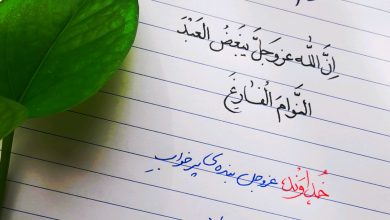 إنَّ اللّٰه عزوجلَّ یبغضُ العَبْدَ
النَّوامَ الْفارِغَ
خُداوَند، عزوجل بنده‌ی پرخوابِ